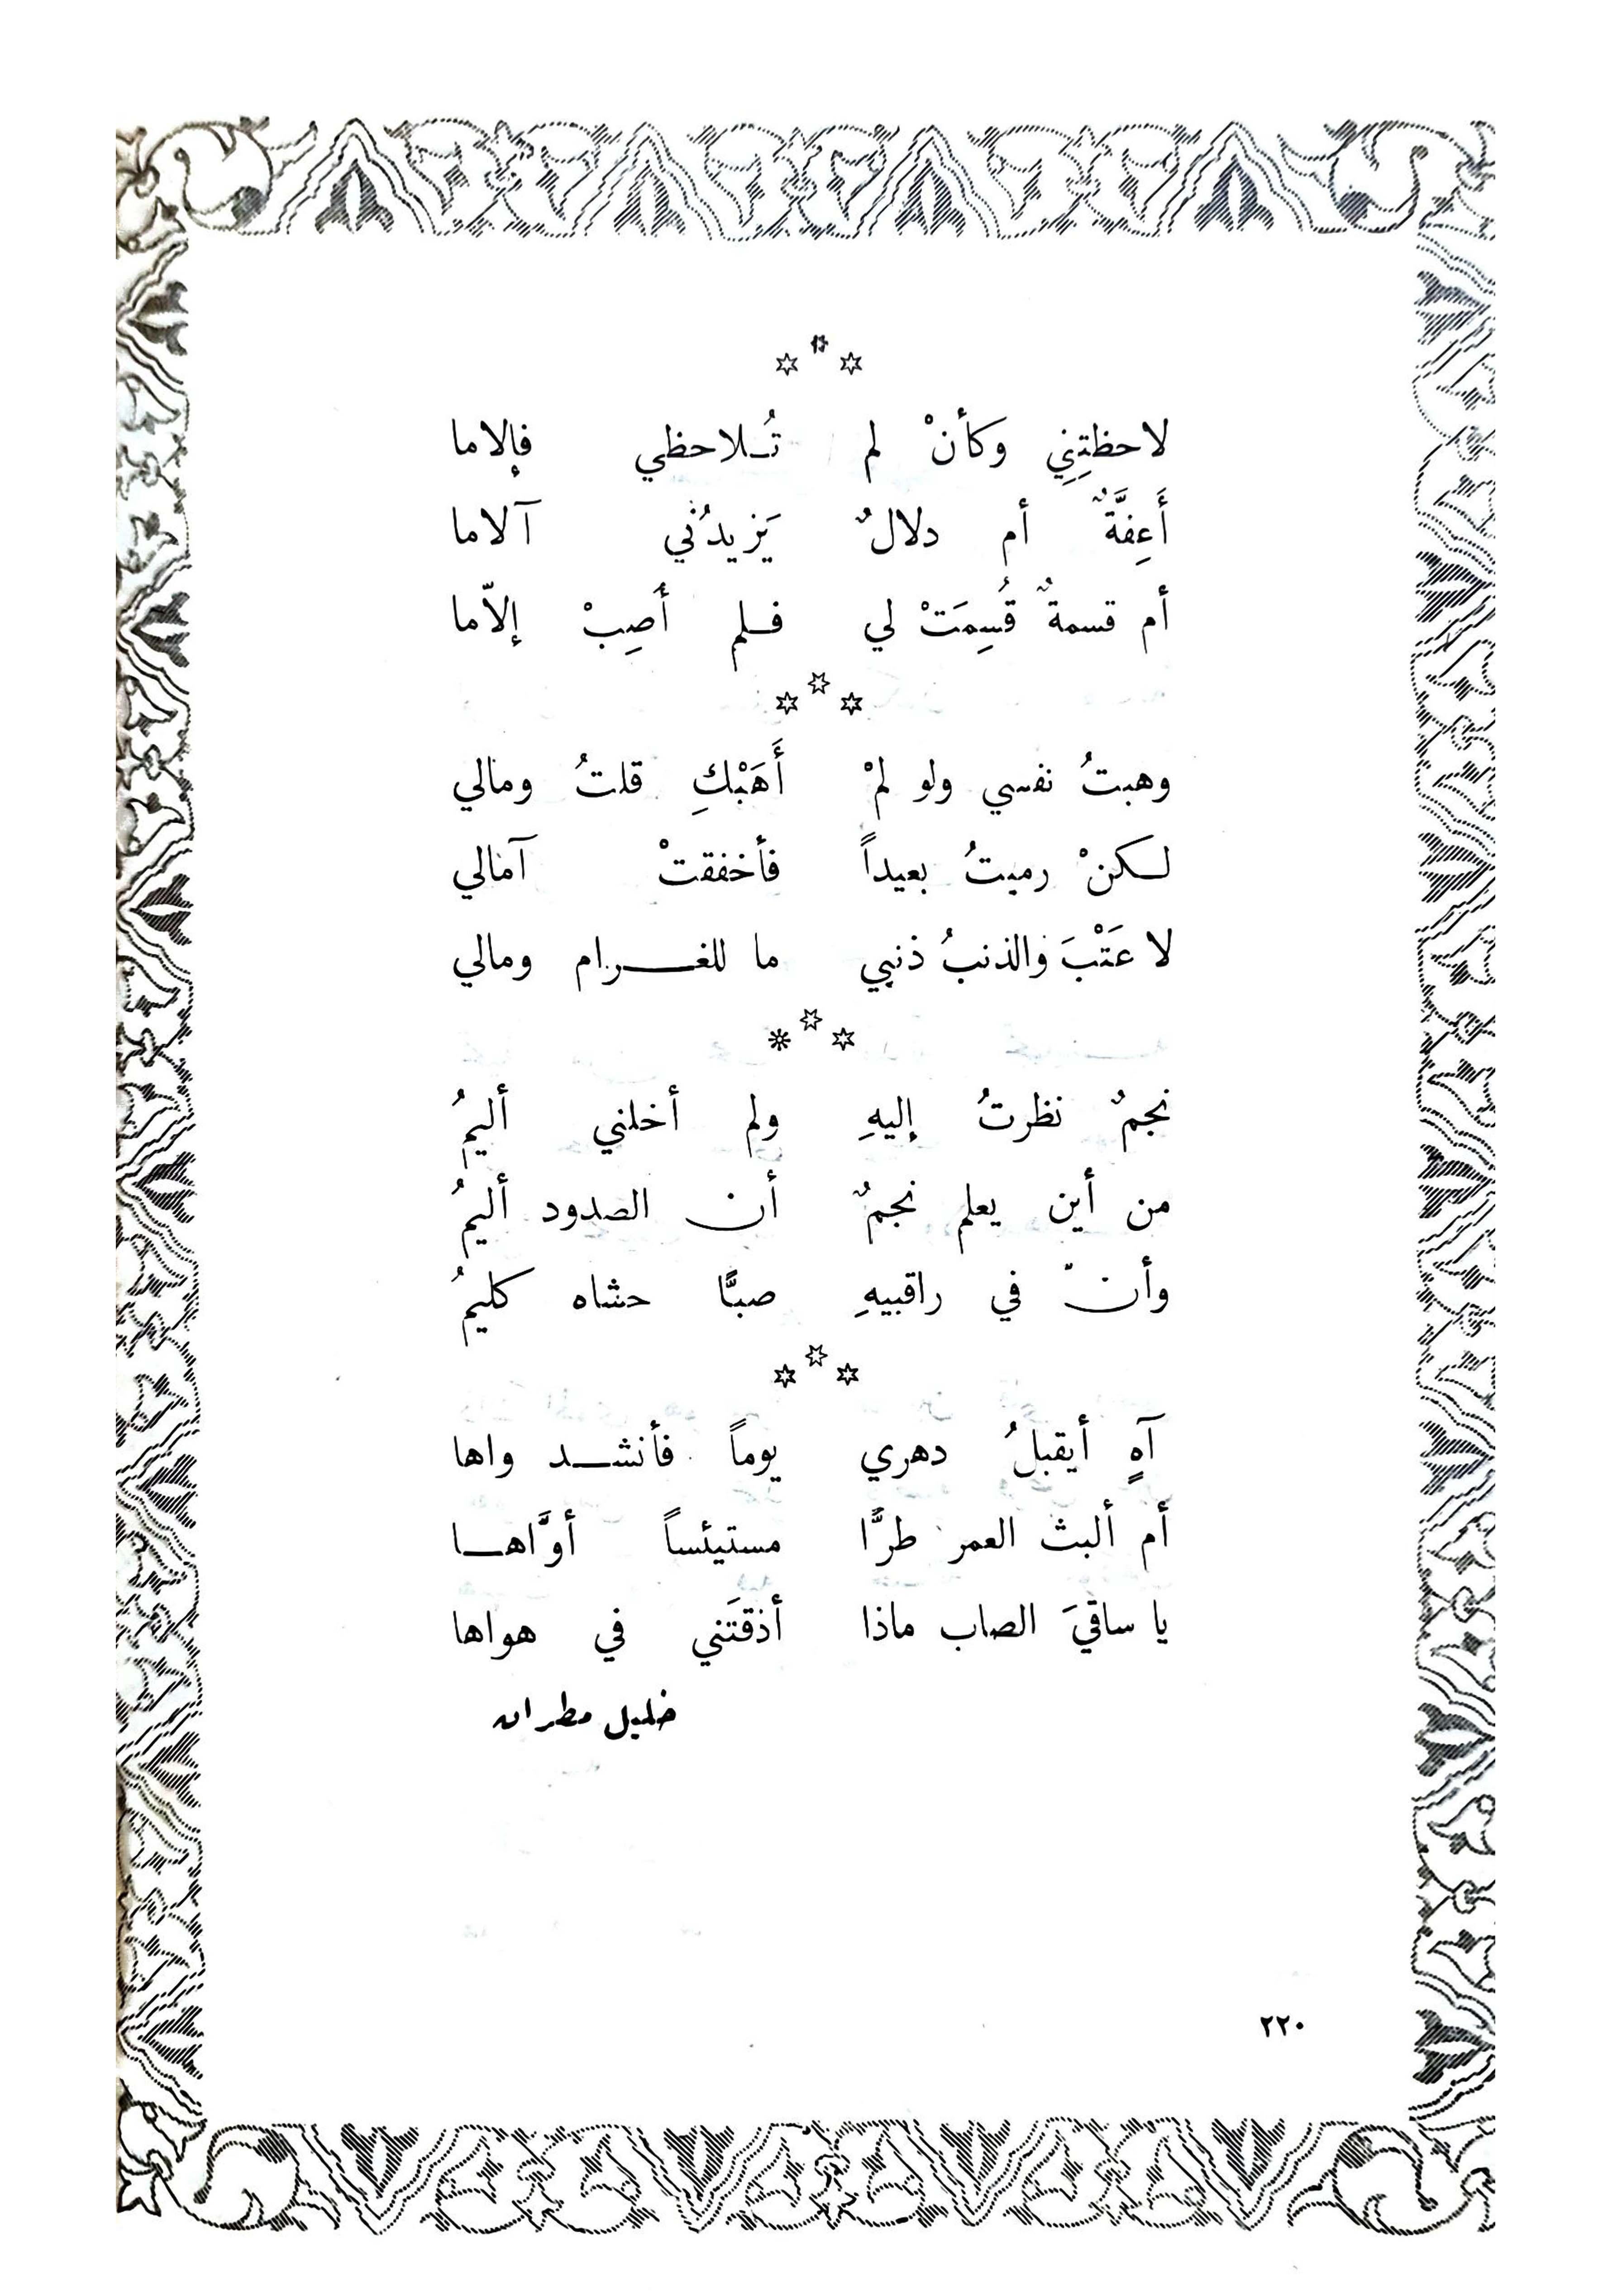 لاحظتِنِي وكأنْ لم تُـلاحظي فإلاما
أَعِفَّةٌ أم دلالٌ يَزيدُني آلاما
أم قسمةٌ قُسِمَتْ لي فـلم أُصِبْ إلاّما
وهبتُ نفسي ولو لمْ أَهَبْكِ قلتُ ومالي
لـكنْ رميتُ بعيداً فأخفقتْ آمالي
لا عَتْبَ والذنبُ ذنبي ما للغـرام ومالي
نجمٌ نظرتُ إليهِ ولم أخلني أليمُ
من أين يعلم نجمٌ أن الصدود أليمُ
وأنّ في راقبيهِ صبًّا حشاه كليمُ
آهٍ أيقبلُ دهري يوماً فأنشـد واها
أم ألبث العمر طرًّا مستيئساً أوَّاهـا
يا ساقيَ الصاب ماذا أذقتَني في هواها
خليل مطران
٢٢٠